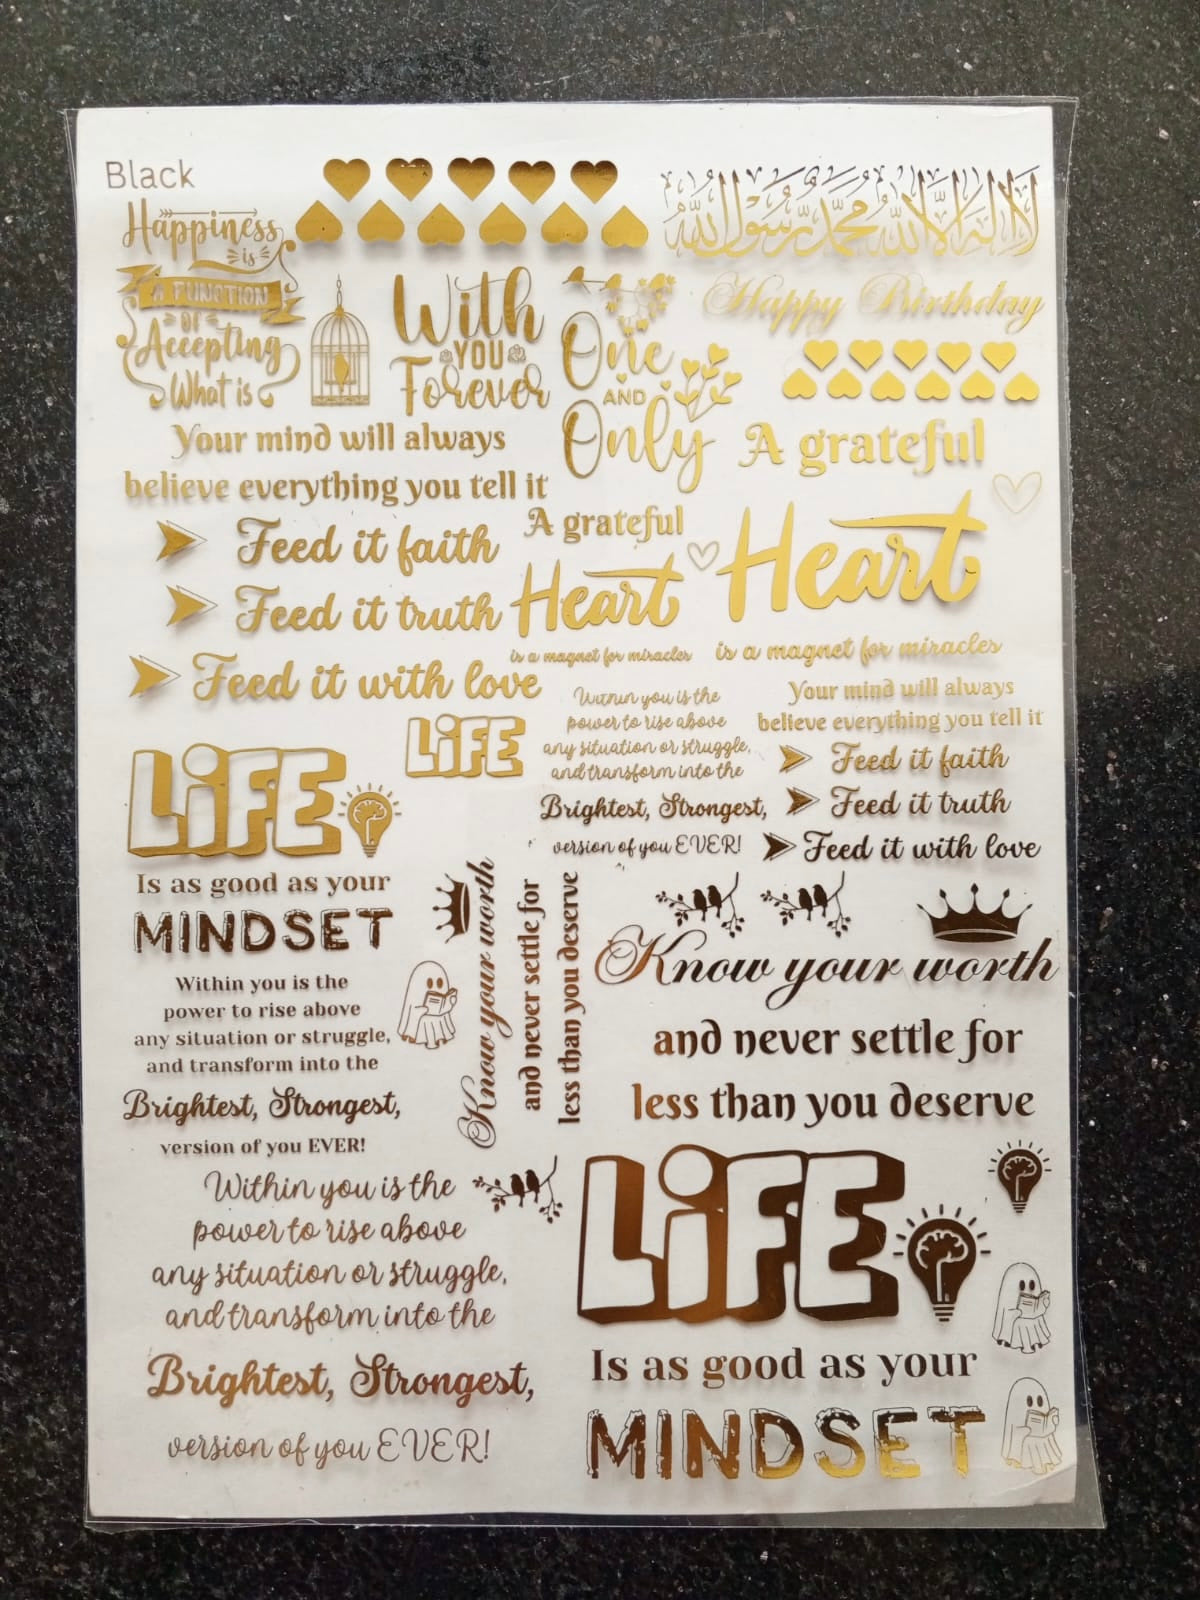 Black
لا إله إلا الله محمد رسول الله
Happiness
is
A FUNCTION
OF
Accepting
What is
With
YOU
Forever
One
AND
Only
Happy Birthday
Your mind will always
believe everything you tell it
Feed it faith
Feed it truth
Feed it with love
A grateful
Heart
is a magnet for miracles
A grateful
Heart
is a magnet for miracles
LiFE
LiFE
Is as good as your
MINDSET
Within you is the
power to rise above
any situation or struggle,
and transform into the
Brightest, Strongest,
version of you EVER!
Your mind will always
believe everything you tell it
Feed it faith
Feed it truth
Feed it with love
Within you is the
power to rise above
any situation or struggle,
and transform into the
Brightest, Strongest,
version of you EVER!
Know your worth
and never settle for
less than you deserve
Know your worth
and never settle for
less than you deserve
Within you is the
power to rise above
any situation or struggle,
and transform into the
Brightest, Strongest,
version of you EVER!
LiFE
Is as good as your
MINDSET